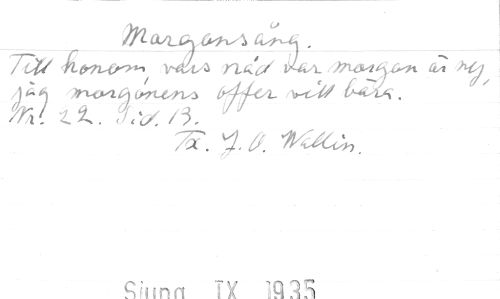 Morgonsång.
Till honom, vars nåd var morgon är ny,
jag morgonens offer vill bära.
Nr. 22. Sid. 13.
Tx. J. O. Wallin.
Sjung IX 1935